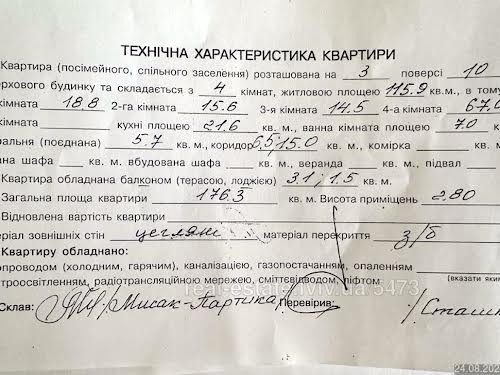 ТЕХНІЧНА ХАРАКТЕРИСТИКА КВАРТИРИ
Квартира (посімейного, спільного заселення) розташована на 3 поверсі 10
ерхового будинку та складається з 4 кімнат, житловою площею 115.9 кв.м., в тому
кімната 18.8 2-га кімната 15.6 3-я кімната 14.5 4-а кімната 67.0
кімната кухні площею 21.6 кв. м, ванна кімната площею 7.0 к
ральня (поєднана) 5.7 кв. м, коридор 6,5; 15.0 кв. м., комірка кв.
ана шафа кв. м. вбудована шафа кв. м., веранда кв. м., підвал
Квартира обладнана балконом (терасою, лоджією) 3.1; 1.5 кв. м.
Загальна площа квартири 176.3 кв. м. Висота приміщень 2.80
Відновлена вартість квартири
еріал зовнішніх стін цегляні матеріал перекриття з/б
Квартиру обладнано:
опроводом (холодним, гарячим), каналізацією, газопостачанням, опаленням
(вказати яким
троосвітленням, радіотрансляційною мережею, сміттєвідводом, ліфтом
real-estate.lviv.ua 5473
Склав: /Мисак-Партика Перевірив: /Сташк
24.08.202